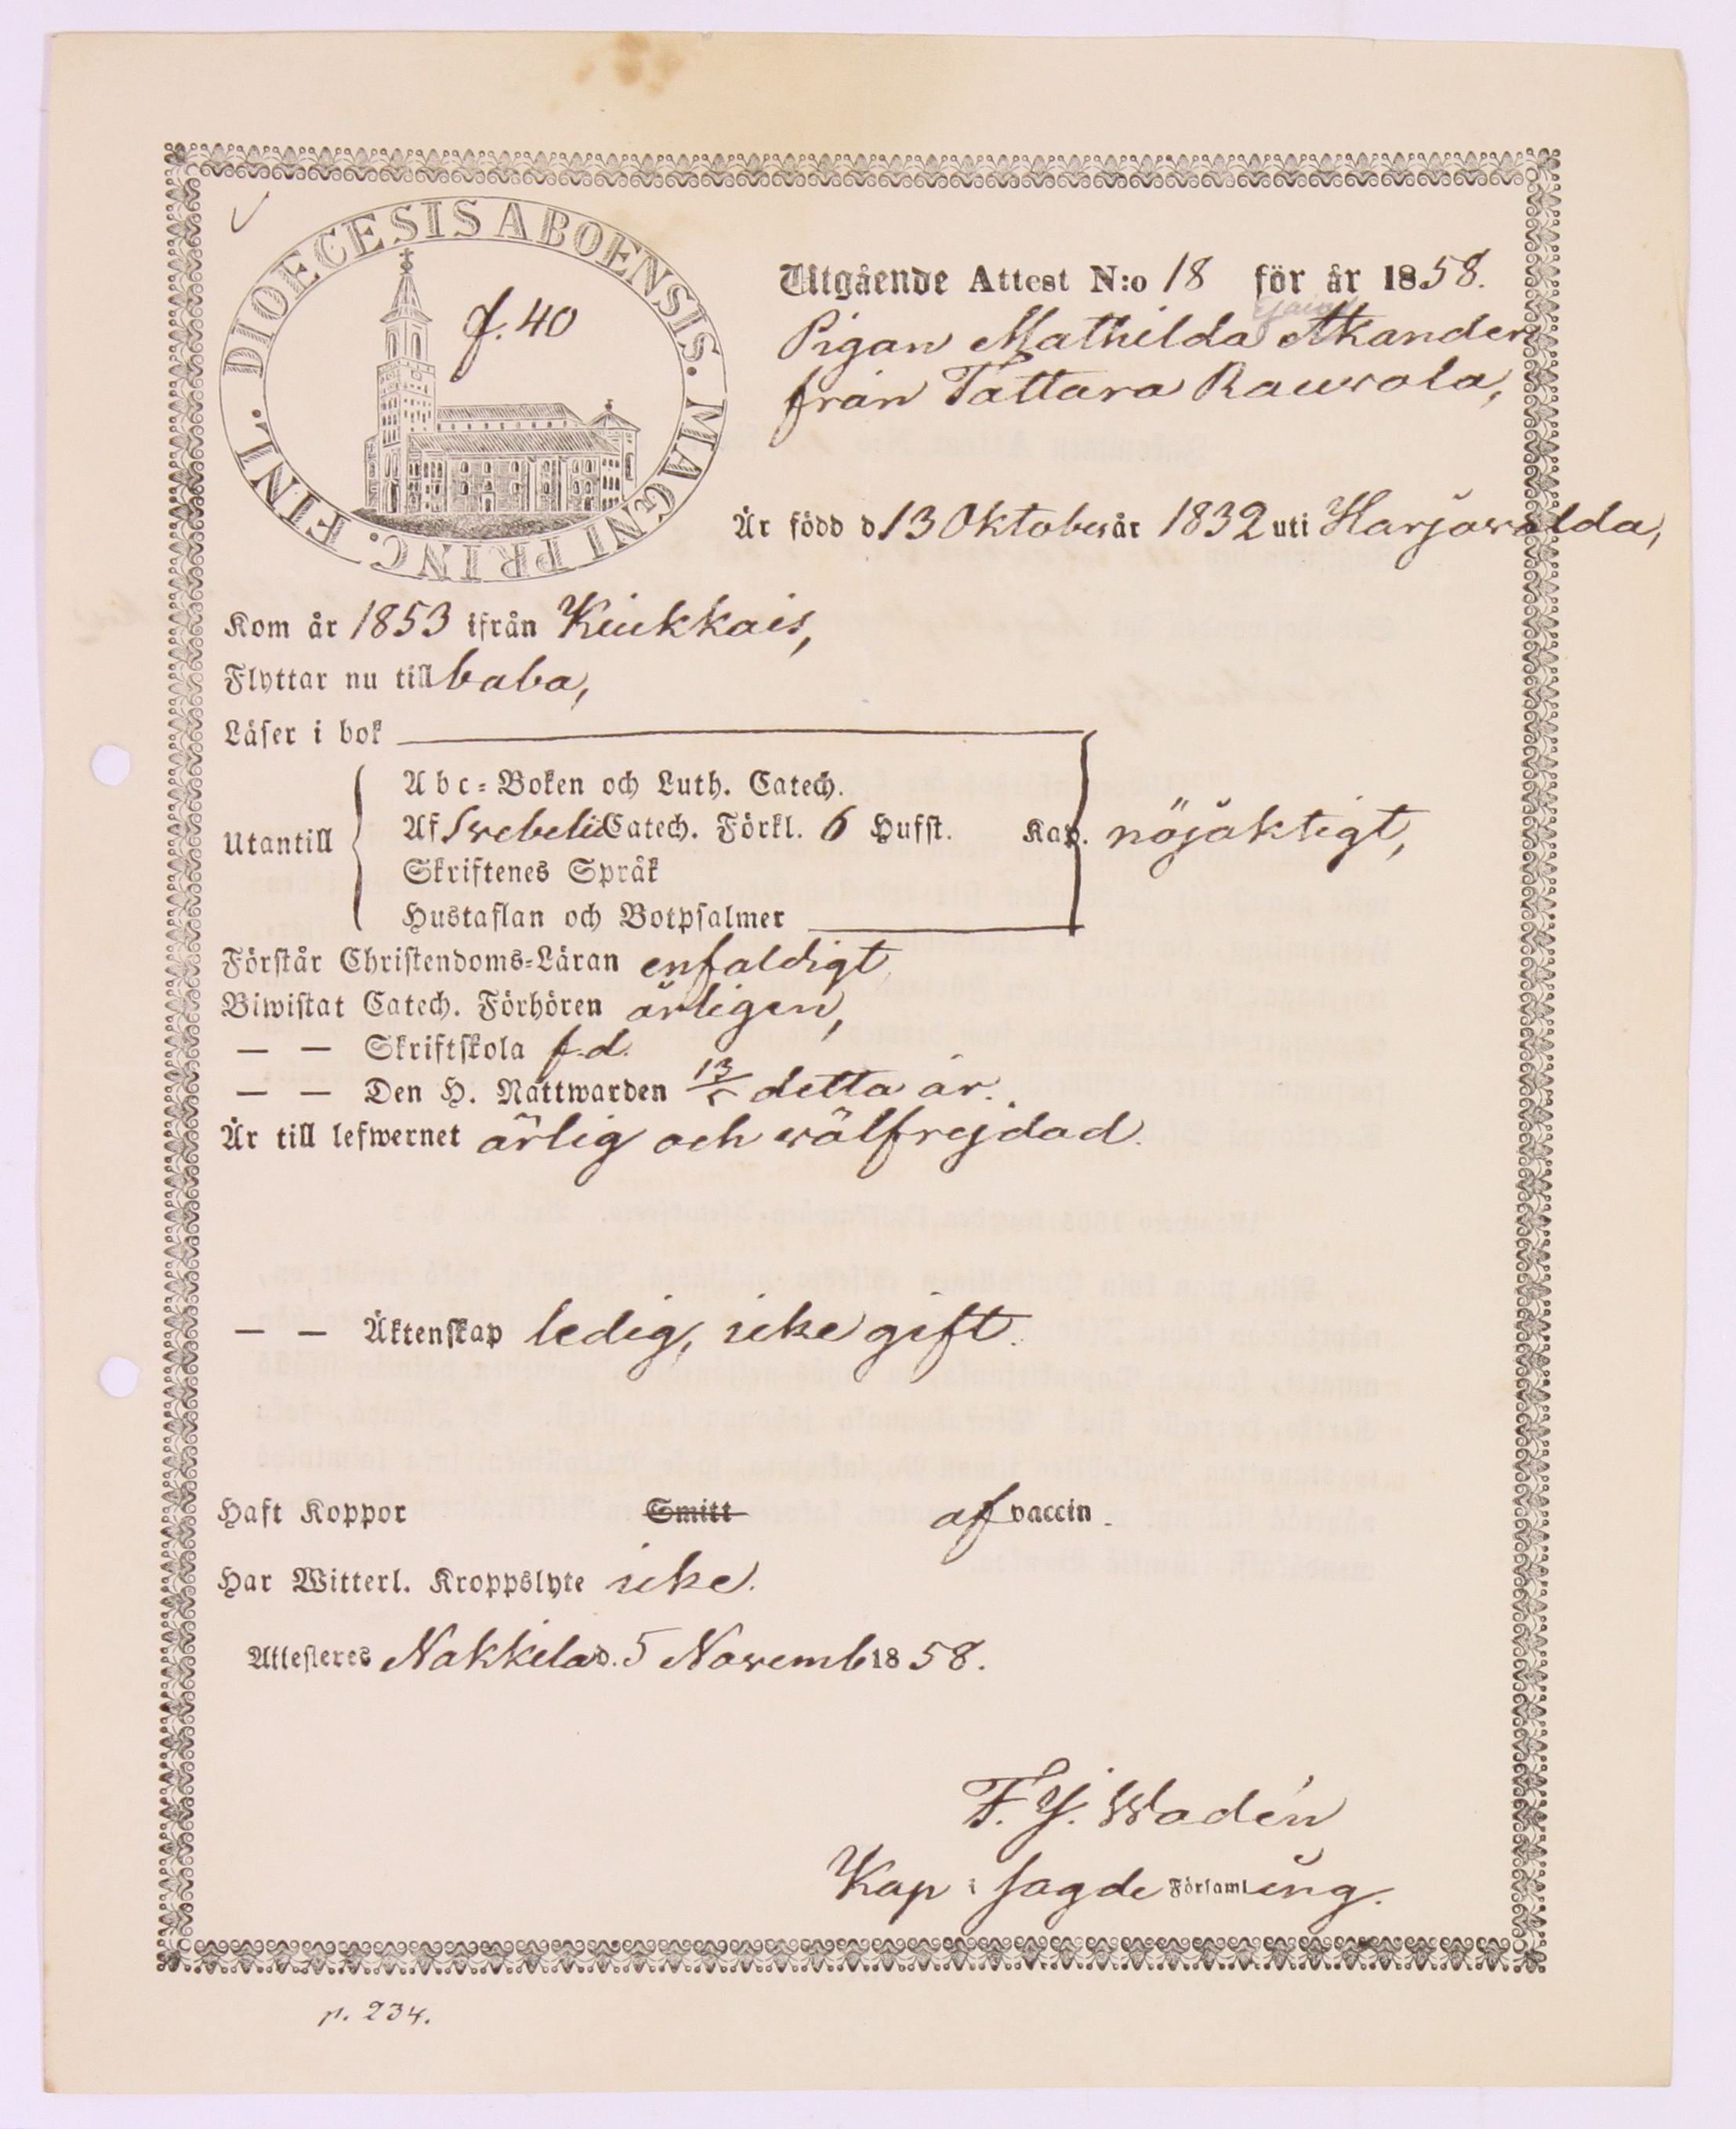 DIOECESIS ABOENSIS. MAGNI PRINC. FINL.
f. 40
Utgående Attest N:o 18 för år 1858.
Pigan Mathilda Akander
från Tattara Rauvola,
Är född d 13 Oktober år 1832 uti Harjavalda,
Kom år 1853 ifrån Kiukkais,
Flyttar nu till baba,
Läser i bok
Abc-Boken och Luth. Catech.
Utantill Af Svebelii Catech. Förkl. 6 Hufst. Kap. nöjaktigt,
Skriftenes Språk
Hustaflan och Botpsalmer
Förstår Christendoms-Läran enfaldigt
Biwistat Catech. Förhören årligen,
— — Skriftskola f.d.
— — Den H. Nattwarden 13/5 detta år.
Är till lefwernet ärlig och wälfrejdad.
— — Äktenskap ledig, icke gift.
Haft Koppor Smitt af vaccin.
Har Witterl. Kroppslyte icke.
Attesteres Nakkila d. 5 Novemb 1858.
F. J. Wadén
Kap i sagde Församling.
p. 234.